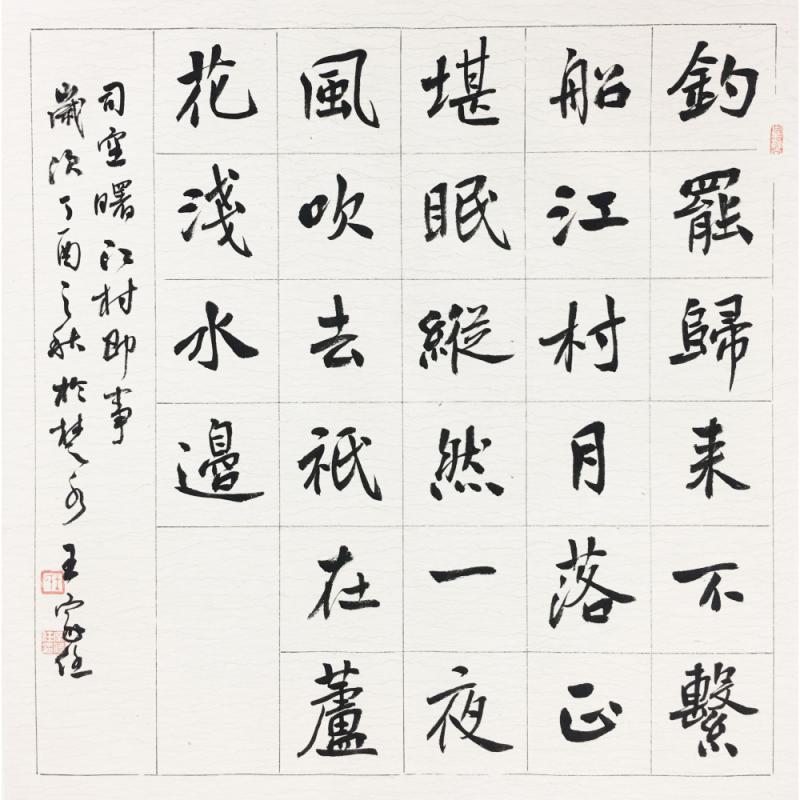 釣罷歸来不繫
船江村月落正
堪眠縱然一夜
風吹去祇在蘆
花淺水邊
司空曙江村即事
歲次丁酉之秋於楚水
王家任